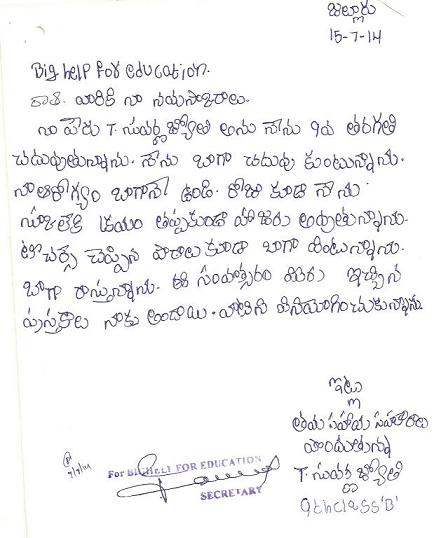 జిల్లూరు
15-7-14
Big help for education.
వారికి నా నమస్కారాలు.
నా పేరు T. సువర్ణ జ్యోతి అను నేను 9వ తరగతి
చదువుతున్నాను. నేను బాగా చదువు కుంటున్నాను.
నా ఆరోగ్యం బాగానే ఉంది. రోజు కూడా నేను
తప్పకుండా హాజరు అవుతున్నాను.
టీచర్స్ చెప్పిన పాఠాలు కూడా బాగా వింటున్నాను.
బాగా రాస్తున్నాను. ఈ సంవత్సరం మీరు ఇచ్చిన
పుస్తకాలు నాకు అందాయి. వాటిని వినియోగించుకున్నాను.
ఇట్లు
మీ
సహాయ సహకారాలు
పొందుతున్న
T. సువర్ణ జ్యోతి
9th class 'B'
For BIG HELP FOR EDUCATION
SECRETARY